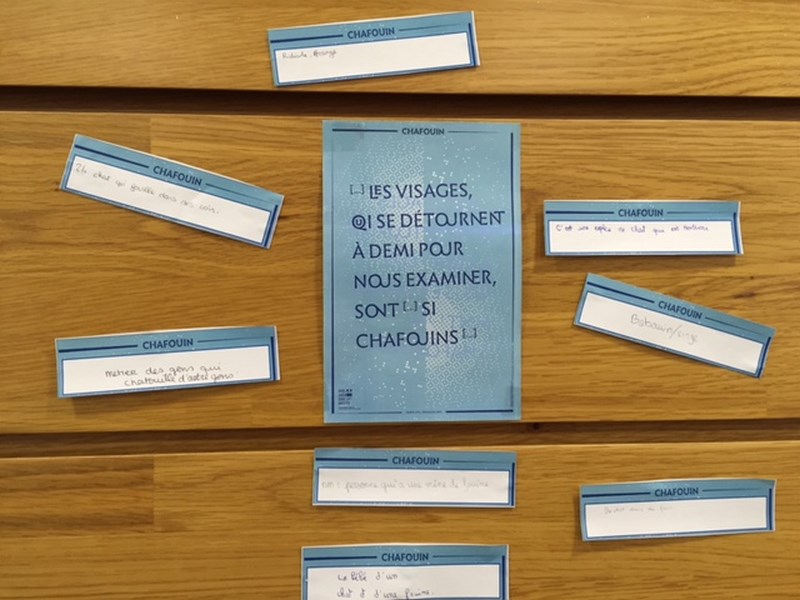 CHAFOUIN
Ridicule,
CHAFOUIN
chat qui fouille dans des coins.
CHAFOUIN
[...] LES VISAGES,
QUI SE DÉTOURNENT
À DEMI POUR
NOUS EXAMINER,
SONT [...] SI
CHAFOUINS [...]
CHAFOUIN
C'est une espèce de chat qui est
CHAFOUIN
Babouin/singe
CHAFOUIN
des gens qui
chatouille d'autre gens.
CHAFOUIN
personne qui a une mine de fouine
CHAFOUIN
CHAFOUIN
Le bébé d'un
chat & d'une fouine.